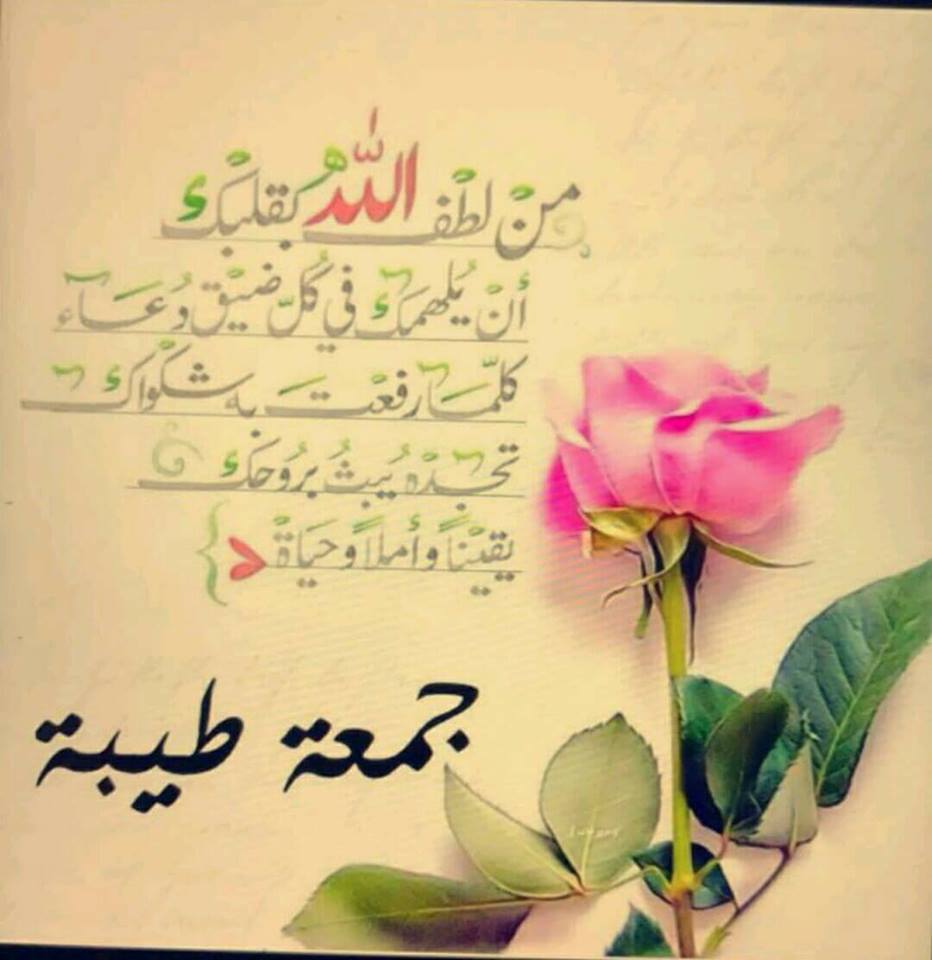 منْ لطْف اللهُ بقلبكْ
أنْ يُلهمكَ في كُلّ ضيْق دُعَاء
كلّمَا رفعْتَ به شكْواك
تجدْهُ يُبثُ برُوحكْ
يقيْناً وأملاً وحيَاةْ
جمعة طيبة